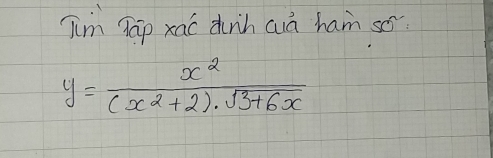 Tìm Tập xác định của hàm số:
y = \frac{x^2}{(x^2+2).\sqrt{3+6x}}